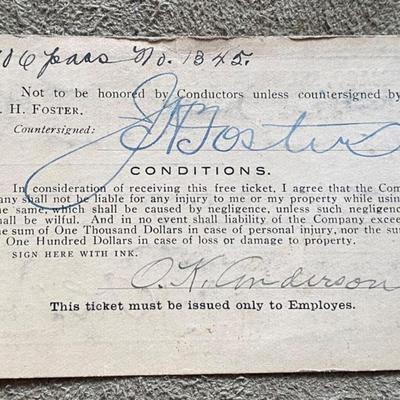 06 pass No. 1345.
Not to be honored by Conductors unless countersigned by
. H. Foster.
Countersigned: J H Foster
CONDITIONS.
In consideration of receiving this free ticket, I agree that the Com
any shall not be liable for any injury to me or my property while using
he same, which shall be caused by negligence, unless such negligence
hall be wilful. And in no event shall liability of the Company exceed
he sum of One Thousand Dollars in case of personal injury, nor the sum
One Hundred Dollars in case of loss or damage to property.
SIGN HERE WITH INK.
O. K. Anderson
This ticket must be issued only to Employes.